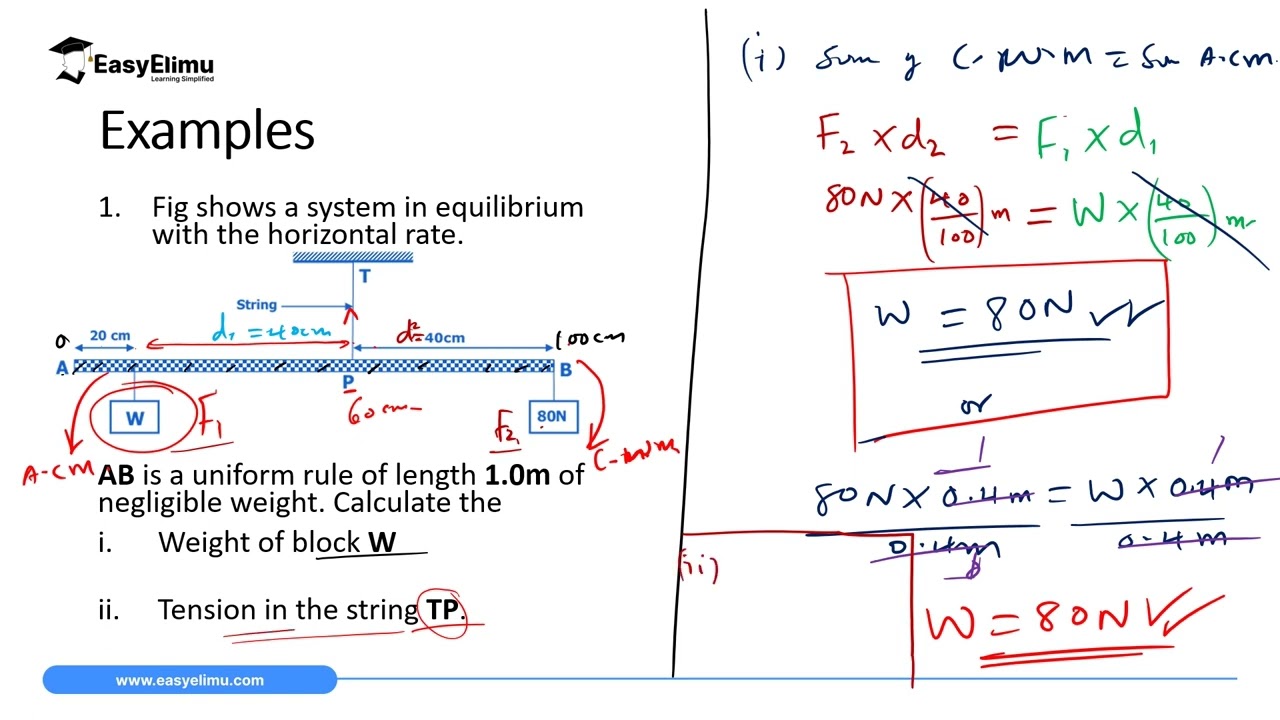 EasyElimu
Learning Simplified
Examples
1. Fig shows a system in equilibrium
with the horizontal rate.
T
String
0 20 cm d₁ = 40cm d2 =40cm 100cm
A P B
60cm
W F₁ F₂ 80N
A-CM C-WM
AB is a uniform rule of length 1.0m of
negligible weight. Calculate the
i. Weight of block W
ii. Tension in the string TP.
www.easyelimu.com
(i) Sum of C.W.M = Sum A.CM.
F₂ × d₂ = F₁ × d₁
80N × (40/100) m = W × (40/100) m
W = 80N
or
1 1
80N × 0.4m = W × 0.4m
0.4m 0.4m
W = 80N
(ii)